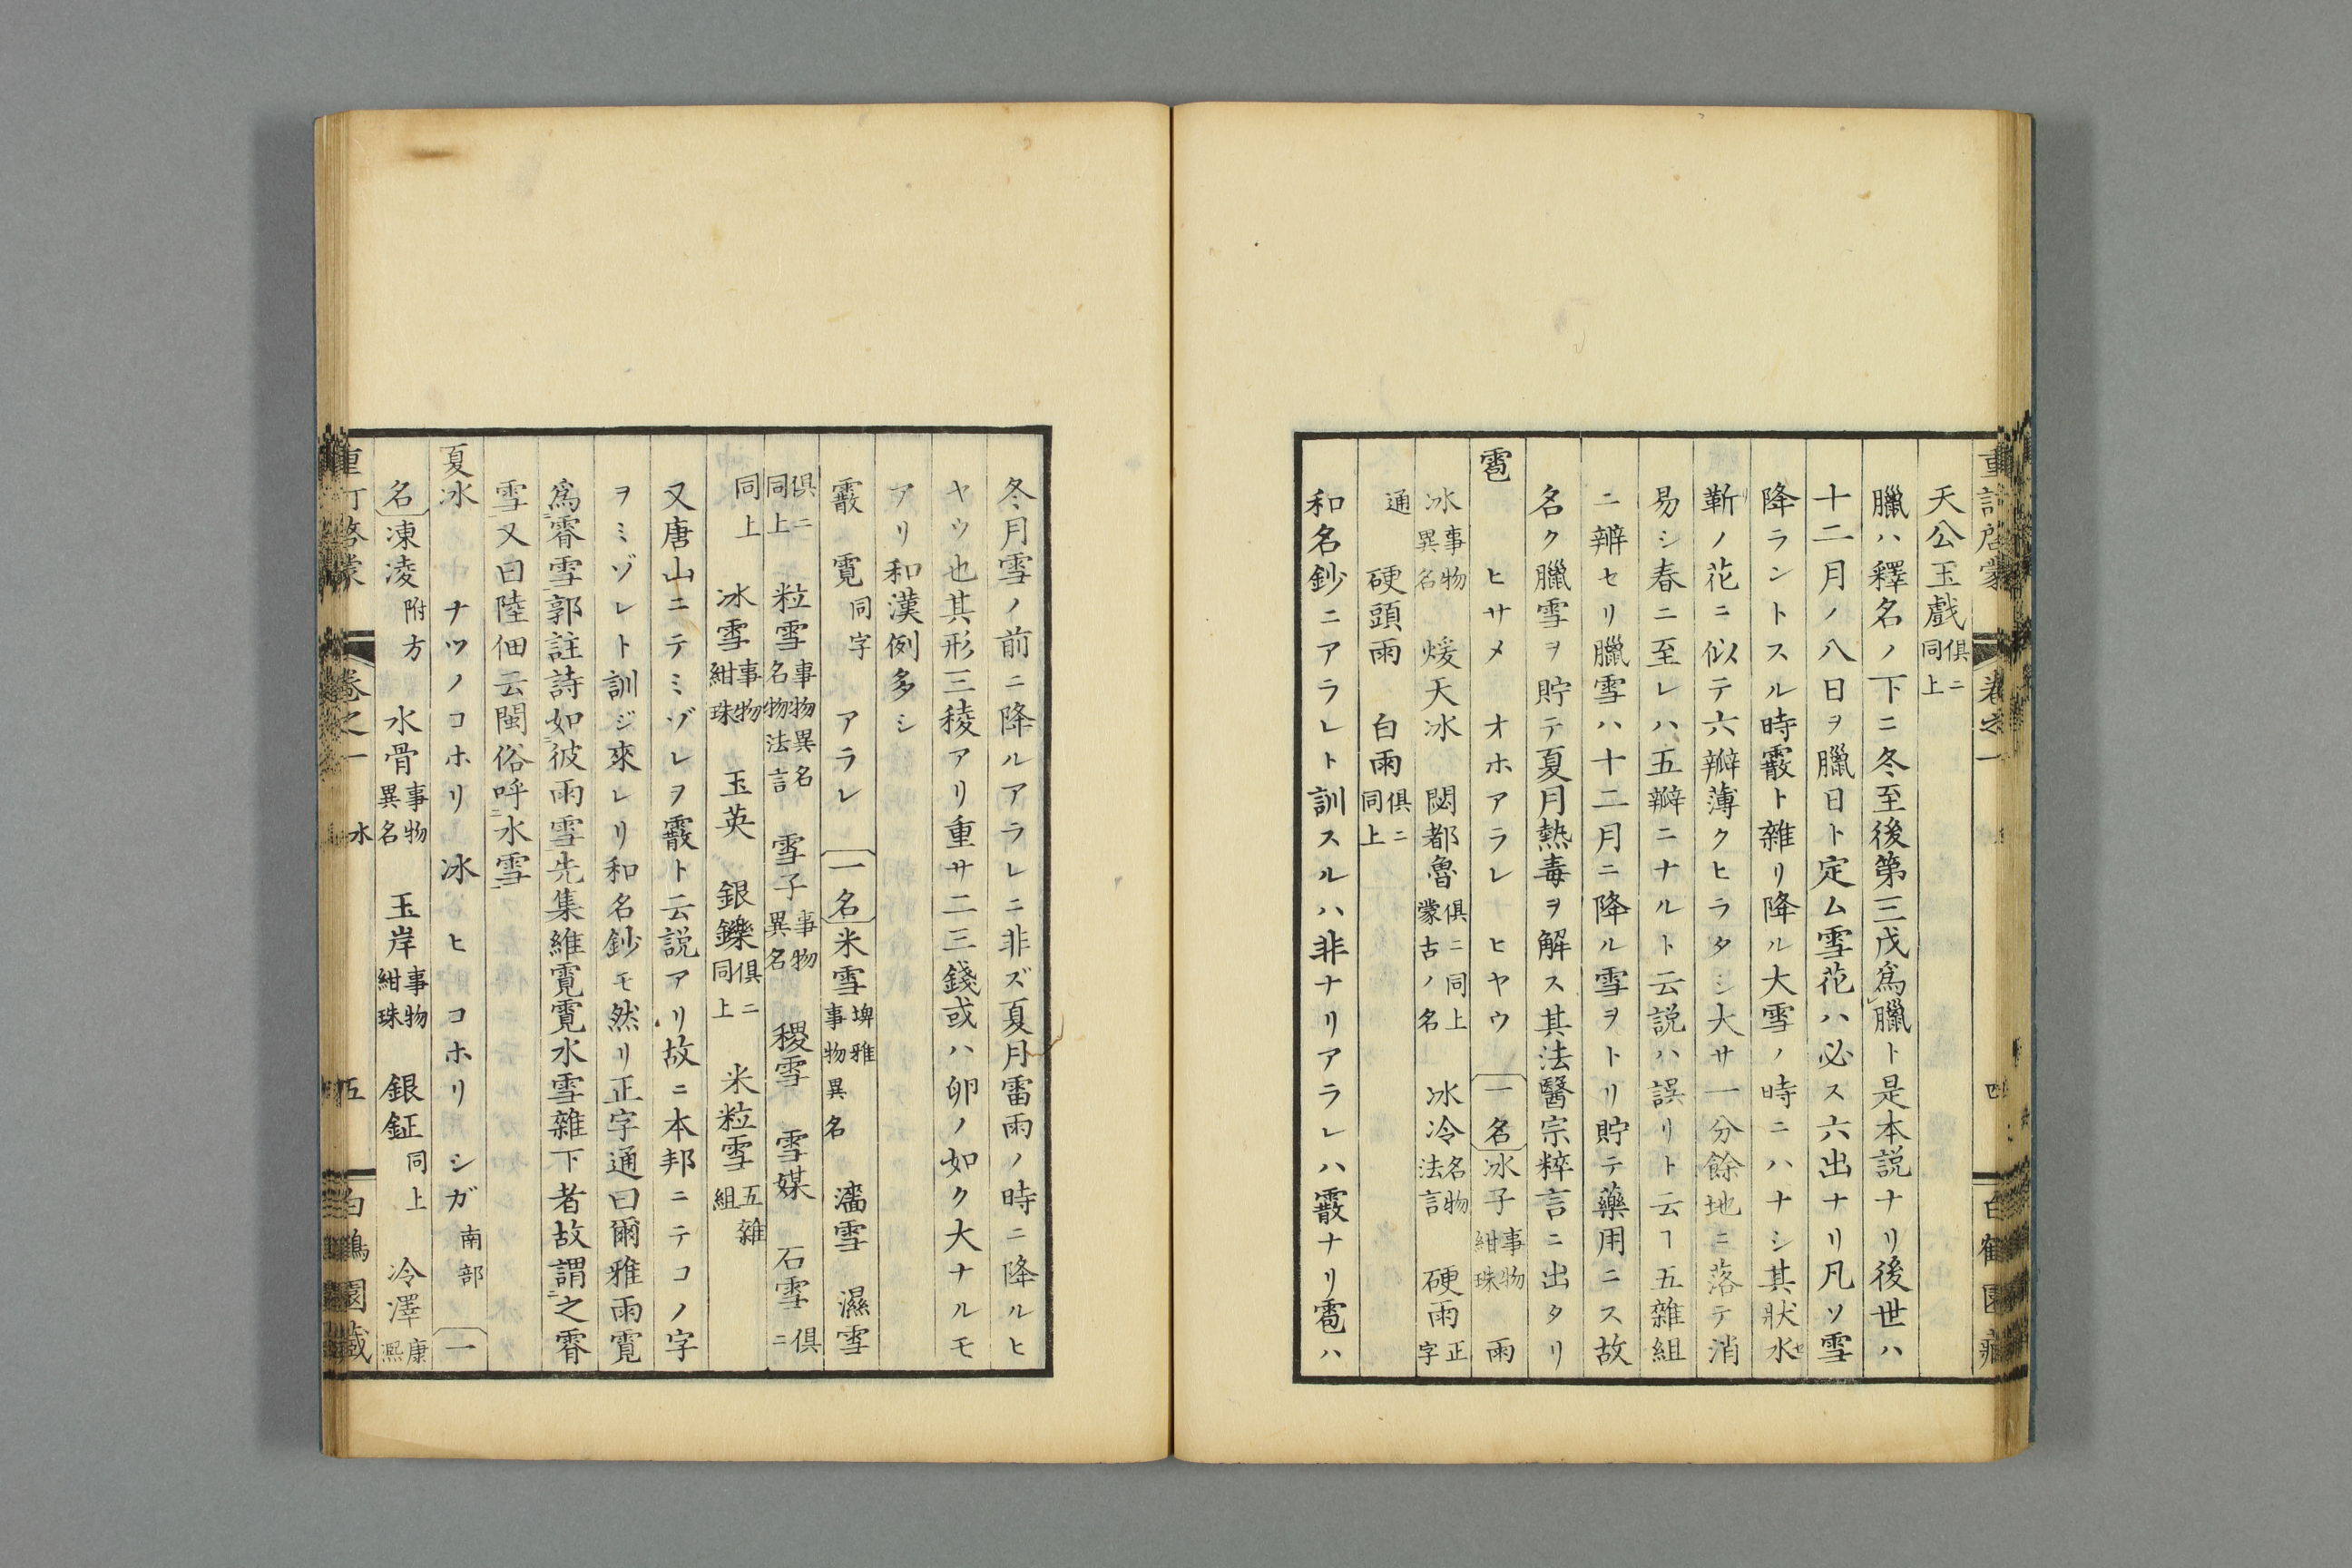 天公玉戲俱ニ同上
臘ハ釋名ノ下ニ冬至後第三戌爲臘ト是本説ナリ後世ハ
十二月ノ八日ヲ臘日ト定ム雪花ハ必ス六出ナリ凡ソ雪
降ラントスル時霰ト雜リ降ル大雪ノ時ニハナシ其狀水セ
リ靳ノ花ニ似テ六瓣薄クヒラタシ大サ一分餘地ニ落テ消
易シ春ニ至レハ五瓣ニナルト云説ハ誤リト云ヿ五雜組
ニ辨セリ臘雪ハ十二月ニ降ル雪ヲトリ貯テ藥用ニス故
名ク臘雪ヲ貯テ夏月熱毒ヲ解ス其法醫宗粹言ニ出タリ
雹 ヒサメ オホアラレ ヒヤウ 一名 冰子事物紺珠 雨
冰事物異名 煖天冰 閟都魯俱ニ同上蒙古ノ名 冰冷名物法言 硬雨正字
通 硬頭雨 白雨俱ニ同上
和名鈔ニアラレト訓スルハ非ナリアラレハ霰ナリ雹ハ
冬月雪ノ前ニ降ルアラレニ非ズ夏月雷雨ノ時ニ降ルヒ
ヤウ也其形三稜アリ重サ二三錢或ハ卵ノ如ク大ナルモ
アリ和漢例多シ
霰 霓同字 アラレ 一名 米雪埤雅事物異名 濕雪
俱ニ同上 粒雪事物異名名物法言 雪子事物異名 稷雪 雪媒 石雪俱ニ
同上 冰雪事物紺珠 玉英 銀鑠俱ニ同上 米粒雪五雜組
又唐山ニテミゾレヲ霰ト云説アリ故ニ本邦ニテコノ字
ヲミゾレト訓ジ來レリ和名鈔モ然リ正字通曰爾雅雨霓
爲霄雪郭註詩如彼雨雪先集維霓霓水雪雜下者故謂之霄
雪又曰陸佃云閩俗呼水雪
夏冰 ナツノコホリ 冰 ヒ コホリ シガ南部 一
名 凍凌附方 水骨事物異名 玉岸事物紺珠 銀鉦同上 冷澤康熙
重訂啓蒙 卷之一 水 四 白鶴園藏
重訂啓蒙 卷之一 水 五 白鶴園藏